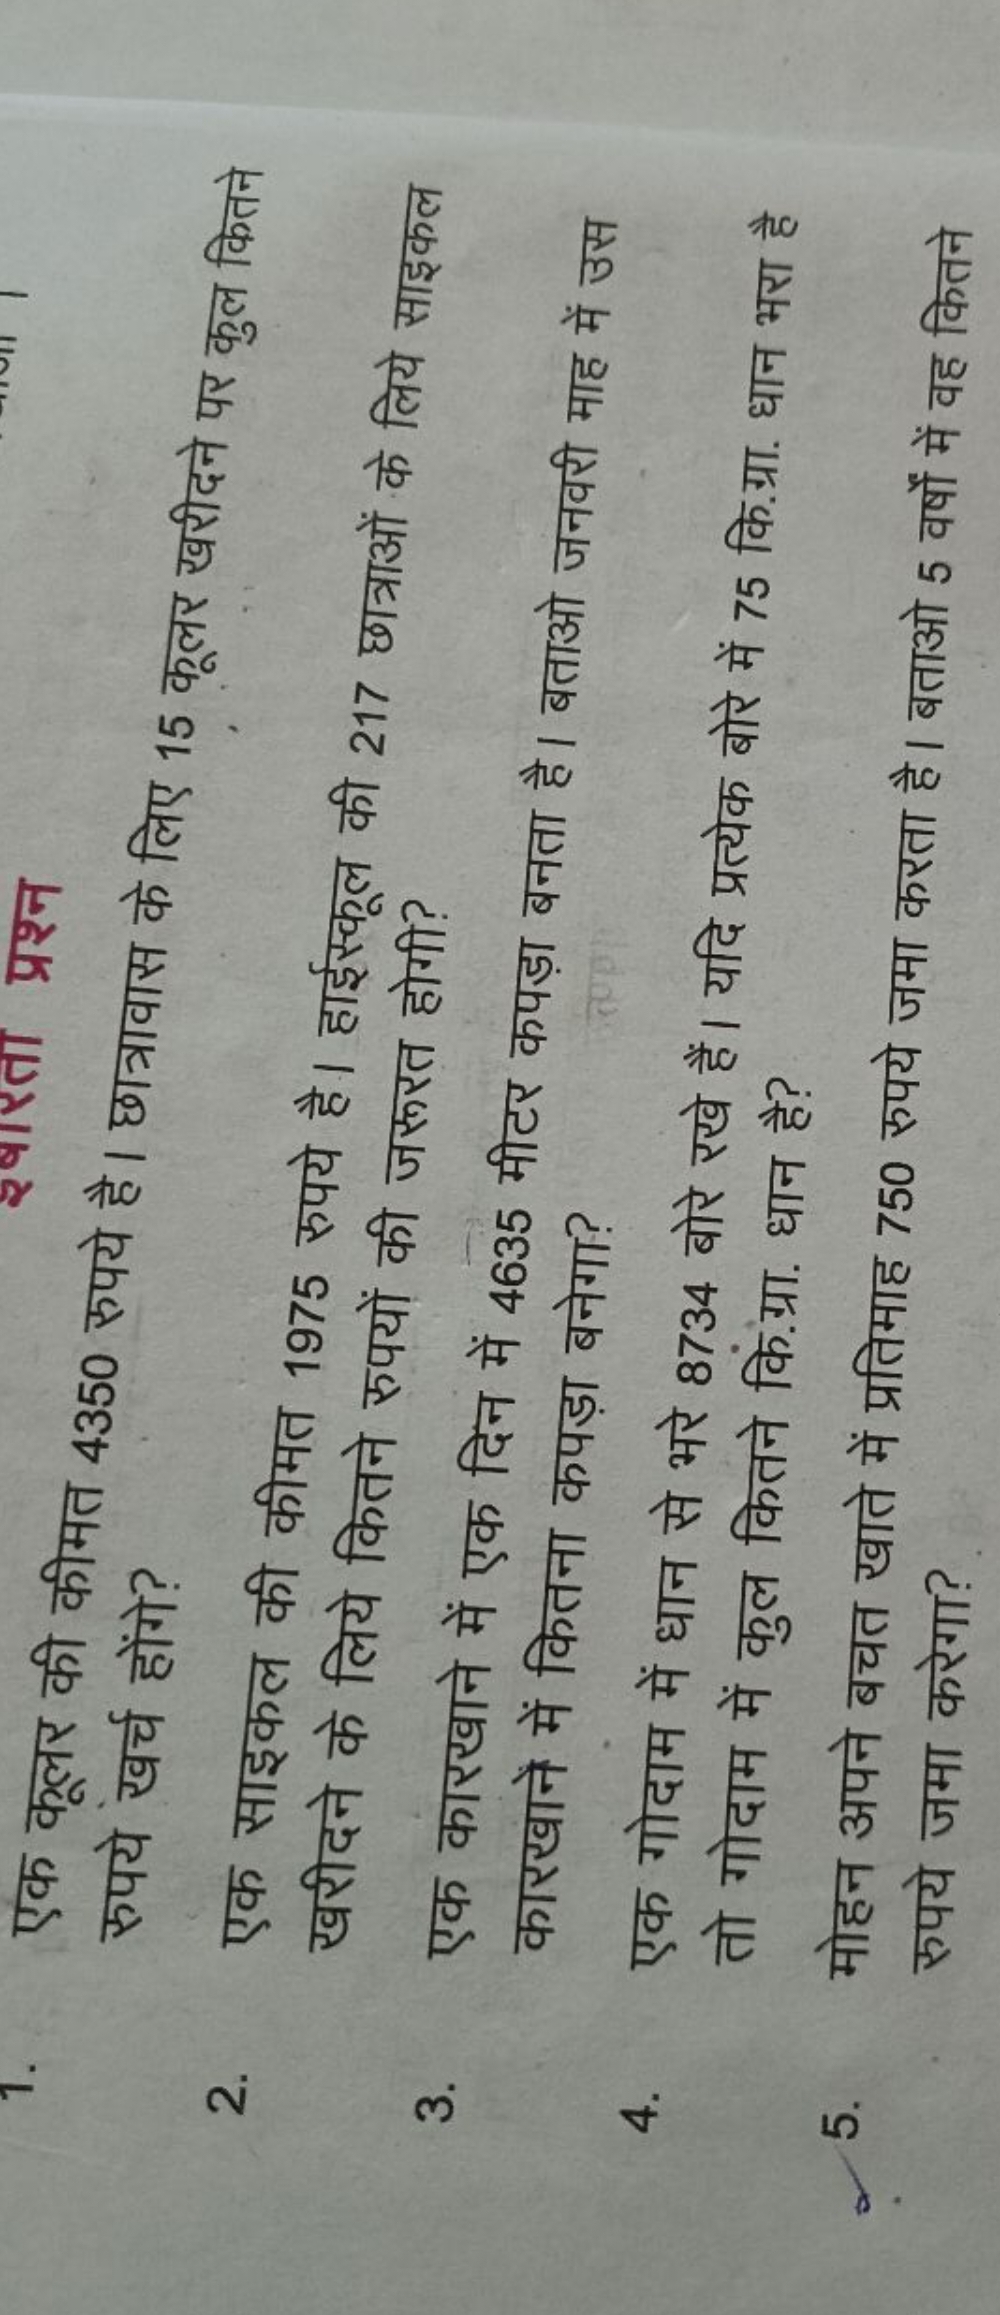 इबारती प्रश्न
1. एक कूलर की कीमत 4350 रुपये है। छात्रावास के लिए 15 कूलर खरीदने पर कुल कितने
रुपये खर्च होंगे?
2. एक साइकल की कीमत 1975 रुपये है। हाईस्कूल की 217 छात्राओं के लिये साइकल
खरीदने के लिये कितने रुपयों की जरूरत होगी?
3. एक कारखाने में एक दिन में 4635 मीटर कपड़ा बनता है। बताओ जनवरी माह में उस
कारखाने में कितना कपड़ा बनेगा?
4. एक गोदाम में धान से भरे 8734 बोरे रखे हैं। यदि प्रत्येक बोरे में 75 कि.ग्रा. धान भरा है
तो गोदाम में कुल कितने कि.ग्रा. धान है?
5. मोहन अपने बचत खाते में प्रतिमाह 750 रुपये जमा करता है। बताओ 5 वर्षों में वह कितने
रुपये जमा करेगा?